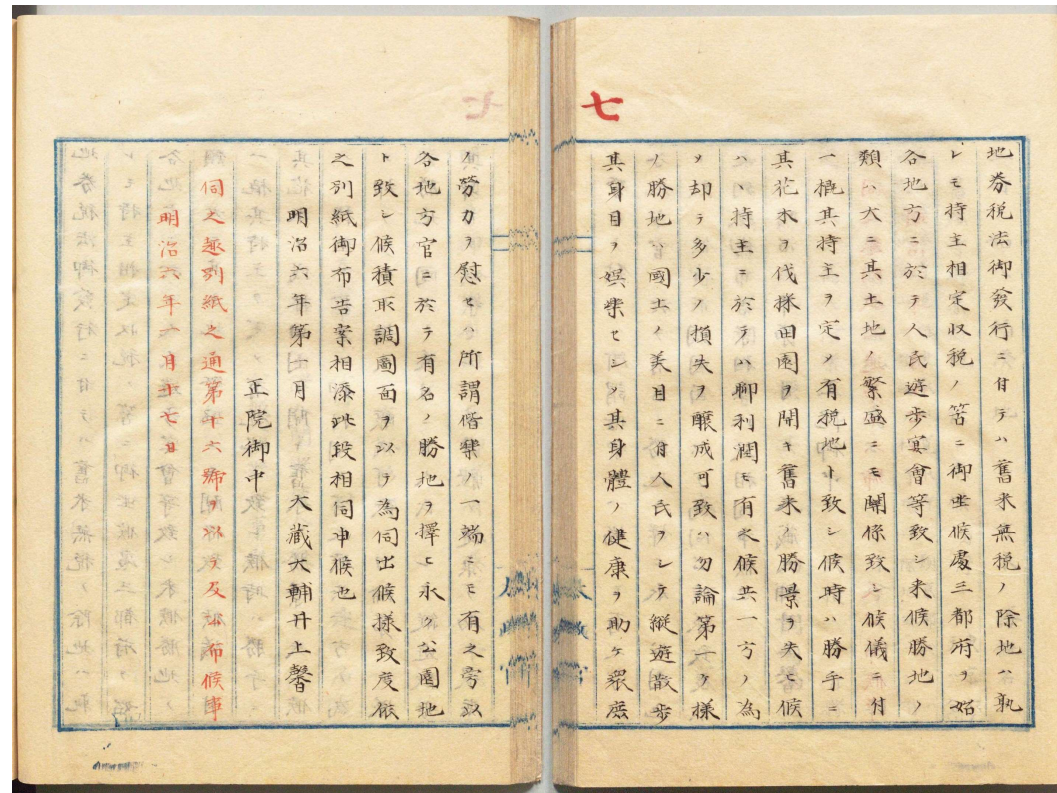 七
地券税法御發行ニ付テハ舊来無税ノ除地ハ孰
レモ持主相定収税ノ筈ニ御坐候處三都府ヲ始
各地方ニ於テ人民遊歩宴會等致シ来候勝地ノ
類ハ大ニ其土地ノ繁盛ニモ關係致シ候儀ニ付
一概其持主ヲ定メ有税地ト致シ候時ハ勝手ニ
其花木ヲ伐採田園ヲ開キ舊来ノ勝景ヲ失ヒ候
ハヽ持主ニ於テハ聊利潤モ有之候共一方ノ為
メ却テ多少ノ損失ヲ醸成可致ハ勿論第一ケ様
ノ勝地ハ國土ノ美目ニ付人民ヲシテ縦遊散歩
其身目ヲ娯楽セシメ其身體ノ健康ヲ助ケ褁麽
ノ勞力ヲ慰セハ所謂偕樂ノ一端ニモ有之旁以
各地方官ニ於テ有名ノ勝地ヲ擇ヒ永ク公園地
ト致シ候積取調圖面ヲ以テ為伺出候様致度依
之別紙御布告案相添此段相伺申候也
明治六年第一月 大蔵大輔井上馨
正院御中
伺之趣別紙之通第十六號ヲ以テ及公布候事
明治六年一月十七日